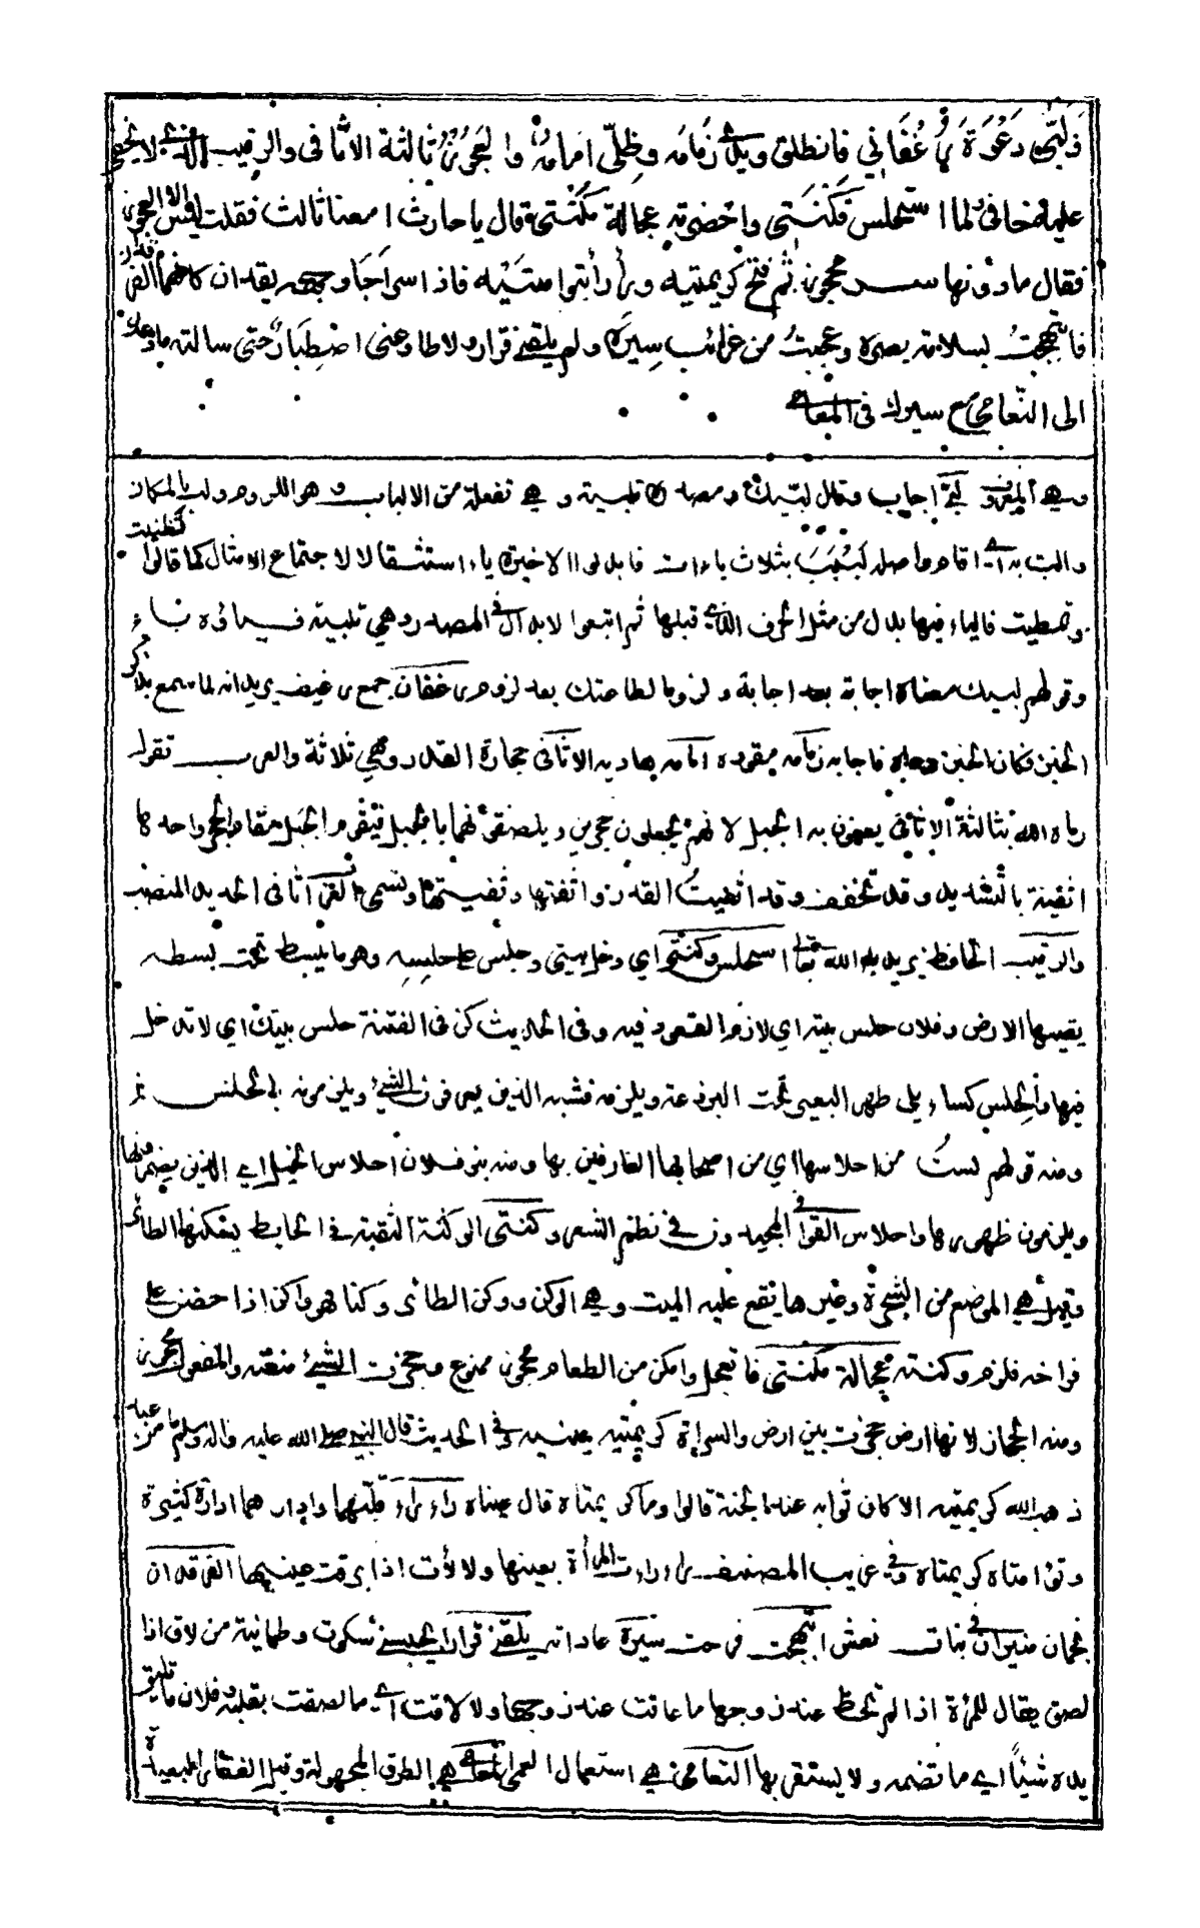 فلبى دعوة رغفاني فانطلق ويدي زمامه وظلي امامه والعجوز ثالثة الاثافي والرقيب الذي لا يخفى
عليه خافي فلما استحلس وكنتي واحضرته عجالة مكنتي قال يا حارث امعنا ثالث فقلت ليس الا العجوز
فقال ما دونها سر محجوز ثم فتح كريمتيه ورأرأ بتوأمتيه فاذا سراجا وجهه يقدان كانهما الفرقدان
فابتهجت بسلامة بصره وعجبت من غرائب سيره ولم يلقني قرار ولا طاوعني اصطبار حتى سالته ما دعاك
الى التعامي مع سيرك في المعامي
والب به اي اقام واصله لبب بثلاث باءات فابدلوا الاخيرة ياء استثقالا لاجتماع الامثال كما قالوا تظنيت
وتمطيت فالياء فيها بدل من مثل الحرف الذي قبلها ثم اتبعوا الابدال في المصدر وهي تلبية
وقولهم لبيك معناه اجابة بعد اجابة ولزوما لطاعتك بعد لزوم رغفان جمع رغيف يريد انه لما سمع بذكر
الخبز فكان الخبز فاجابه زمامه مقوده امامه هاديه الاثافي حجارة القدر وهي ثلاثة والعرب تقول
رماه الله بثالثة الاثافي يعنون به الجبل لانهم يجعلون حجرين ويلصقونهما بالجبل فيقوم الجبل مقام الحجر واحدها
اثفية بالتشديد وقد تخفف وقد اثفيت القدر واثفتها وثفيتها وتسمى اثافي الحديد المنصب
والرقيب الحافظ يريد به الله تعالى استحلس وكنتي اي دخل بيتي وجلس على حلسه وهو ما يبسط تحت بسطه
يقيها الارض وفلان حلس بيته اي لازم القعود فيه وفي الحديث كن في الفتنة حلس بيتك اي لا تدخل
فيها والحلس كساء يلي ظهر البعير تحت البرذعة ويلزمه فشبه الذين يعرفون الشيء ويلزمونه بالحلس
ومنه قولهم لست من احلاسها اي من اصحابها العارفين بها ومنه بنو فلان احلاس الخيل اي الذين يضمرونها
ويلزمون ظهورها واحلاس القوافي المجيدون في نظم الشعر وكنتي الوكنة الثقبة في الحايط يسكنها الطائر
وقيل هي الموضع من الشجرة وغيرها يقع عليه وهي الوكن ووكن الطائر وكنا فهو واكن اذا حضن على
فراخه فلزم وكنته عجالة مكنتي ما تعجل وامكن من الطعام محجوز ممنوع وحجزت الشيء منعته والمفعول محجوز
ومنه الحجاز لانها ارض حجزت بين ارض والسراة كريمتيه عينيه وفي الحديث قال النبي صلى الله عليه واله وسلم ما من عبد
ذهب الله كريمتيه الا كان ثوابه عند الجنة قالوا وما كريمتاه قال عيناه رأرأ قلبهما وادارهما ادارة كثيرة
وتوأمتاه كريمتاه وفي غريب المصنف رأرأت المرأة بعينها ولألأت اذا برقت عينيها الفرقدان
نجمان منيران في بنات نعش ابتهجت فرحت سيره عاداته يلقني قرار يحبسني سكون وطمانية من لاق اذا
لصق يقال للمرأة اذا لم تحظ عند زوجها ما عاقت عند زوجها ولا لاقت اي ما لصقت بقلبه وفلان ما تليق
يده شيئا اي ما تضمه ولا يستقر بها التعامي هي استعمال العمى المعامي هي الطرق المجهولة وقيل القفار البعيدة